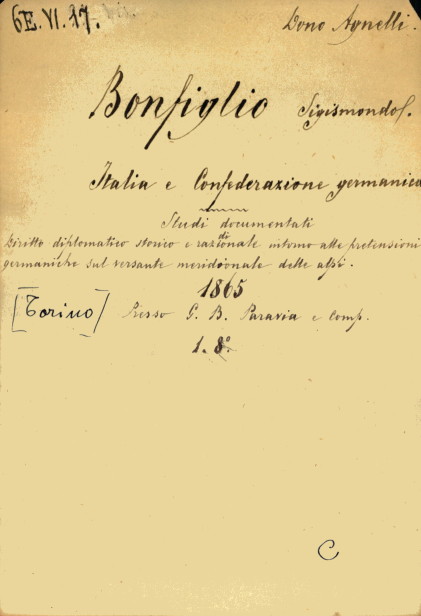 6E. VI. 17. Dono Agnelli.
Bonfiglio Sigismondo S.
Italia e Confederazione germanica
Studi documentati
di
diritto diplomatico storico e razionale intorno alle pretensioni
germaniche sul versante meridionale delle alpi.
1865
[Torino] Presso G. B. Paravia e Comp.
1. 8º.
C